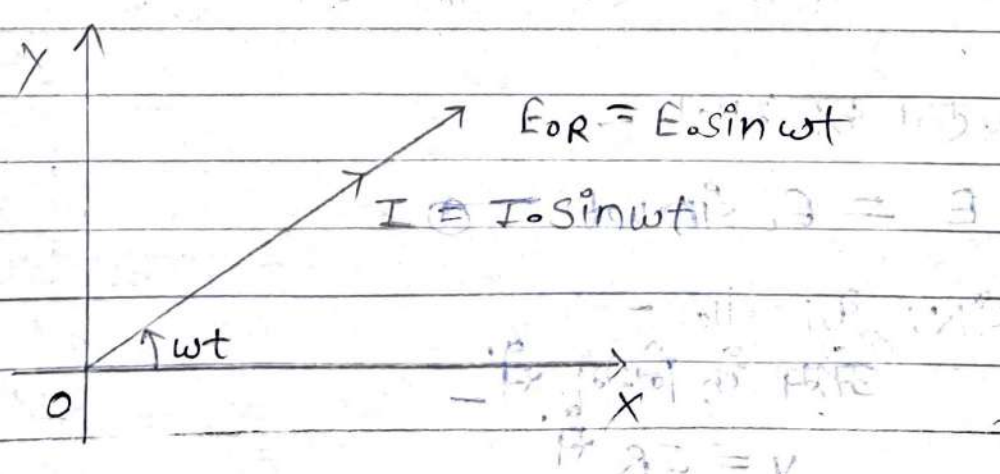 Y
E₀R = E₀sinωt
I = I₀sinωt
ωt
O
X